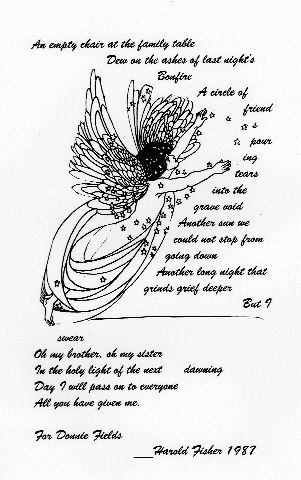 An empty chair at the family table
Dew on the ashes of last night's
Bonfire
A circle of
friend
s
pour
ing
tears
into the
grave void
Another sun we
could not stop from
going down
Another long night that
grinds grief deeper
But I
swear
Oh my brother, oh my sister
In the holy light of the next dawning
Day I will pass on to everyone
All you have given me.
For Donnie Fields
___Harold Fisher 1987